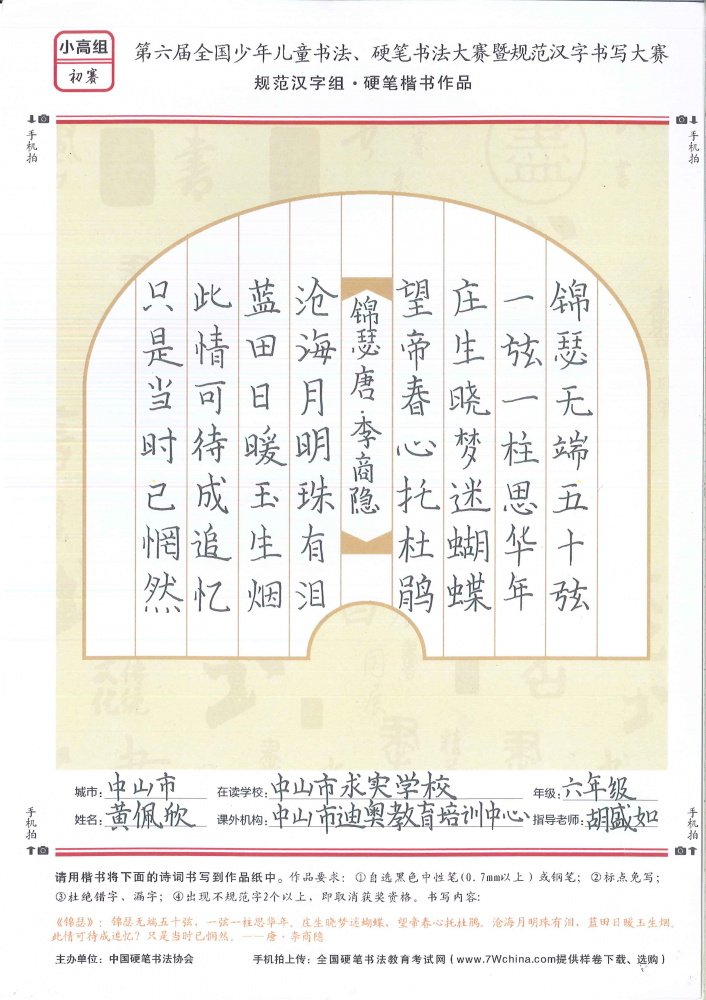 小高组
初赛
第六届全国少年儿童书法、硬笔书法大赛暨规范汉字书写大赛
规范汉字组·硬笔楷书作品
手机拍
手机拍
锦瑟无端五十弦
一弦一柱思华年
庄生晓梦迷蝴蝶
望帝春心托杜鹃
锦瑟唐·李商隐
沧海月明珠有泪
蓝田日暖玉生烟
此情可待成追忆
只是当时已惘然
城市：中山市 在读学校：中山市求实学校 年级：六年级
姓名：黄佩欣 课外机构：中山市迪奥教育培训中心 指导老师：胡盛如
手机拍
手机拍
请用楷书将下面的诗词书写到作品纸中。作品要求：①自选黑色中性笔(0.7mm以上）或钢笔；②标点免写；
③杜绝错字、漏字；④出现不规范字2个以上，即取消获奖资格。书写内容：
《锦瑟》：锦瑟无端五十弦，一弦一柱思华年。庄生晓梦迷蝴蝶，望帝春心托杜鹃。沧海月明珠有泪，蓝田日暖玉生烟。
此情可待成追忆？只是当时已惘然。——唐·李商隐
主办单位：中国硬笔书法协会 手机拍上传：全国硬笔书法教育考试网（www.7Wchina.com提供样卷下载、选购）